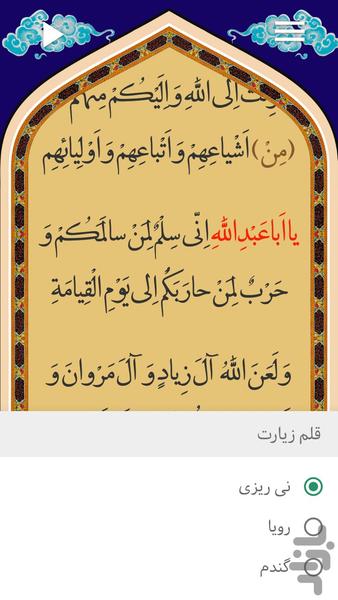 بَرِئْتُ اِلَى اللهِ وَ اِلَيْكُمْ مِنْهُمْ
(مِنْ) اَشْياعِهِمْ وَ اَتْباعِهِمْ وَ اَوْلِيائِهِم
يا اَبا عَبْدِ اللهِ اِنّى سِلْمٌ لِمَنْ سالَمَكُمْ وَ
حَرْبٌ لِمَنْ حارَبَكُمْ اِلى يَوْمِ الْقِيامَةِ
وَ لَعَنَ اللهُ آلَ زِيادٍ وَ آلَ مَرْوانَ وَ
قلم زیارت
نی ریزی
رویا
گندم
بازار